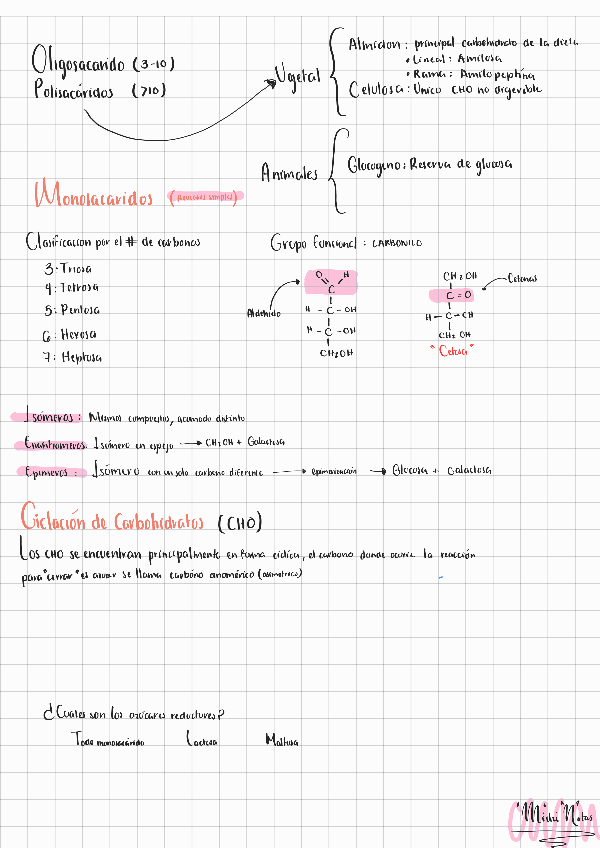 Oligosacarido (3-10)
Polisacáridos (>10)
Vgetal
Almidon: principal carbohidrato de la dieta
• Lineal: Amilosa
• Rama: Amilopeptina
Celulosa: Unico CHO no digerible
Animales
Glocogeno: Reserva de glucosa
Monosacaridos (Azucares simples)
Clasificacion por el # de carbonos
3: Triosa
4: Tetrosa
5: Pentosa
6: Hexosa
7: Heptosa
Grupo funcional: CARBONILO
Aldehido
O H
C
H - C - OH
H - C - OH
CH2OH
CH2OH
C=O
H - C - OH
CH2 OH
Cetonas
"Cetosa"
Isómeros: Mismos compuestos, acomodo distinto
Enantiomeros: Isómero en espejo → CH2OH + Galactosa
Epimeros: Isómero con un solo carbono diferente → epimerización → Glucosa + Galactosa
Ciclación de Carbohidratos (CHO)
Los CHO se encuentran principalmente en forma cíclica, el carbono donde ocurre la reacción
para "cerrar" es azucar se llama carbono anomérico (asimetrico)
¿Cuales son los azúcares reductores?
Todo monosacárido Lactosa Maltosa
"Michi Notas